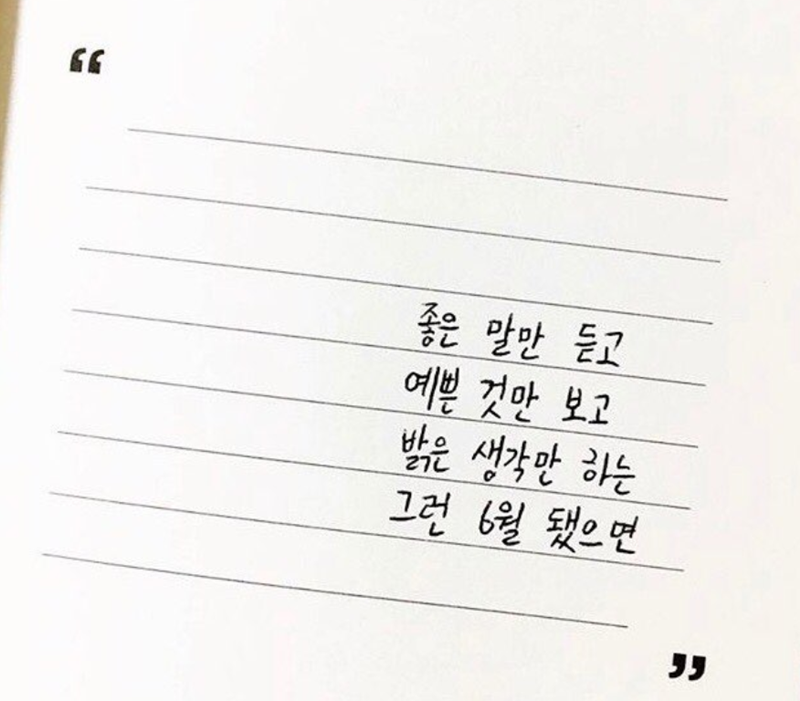 “
좋은 말만 듣고
예쁜 것만 보고
밝은 생각만 하는
그런 6월 됐으면
”